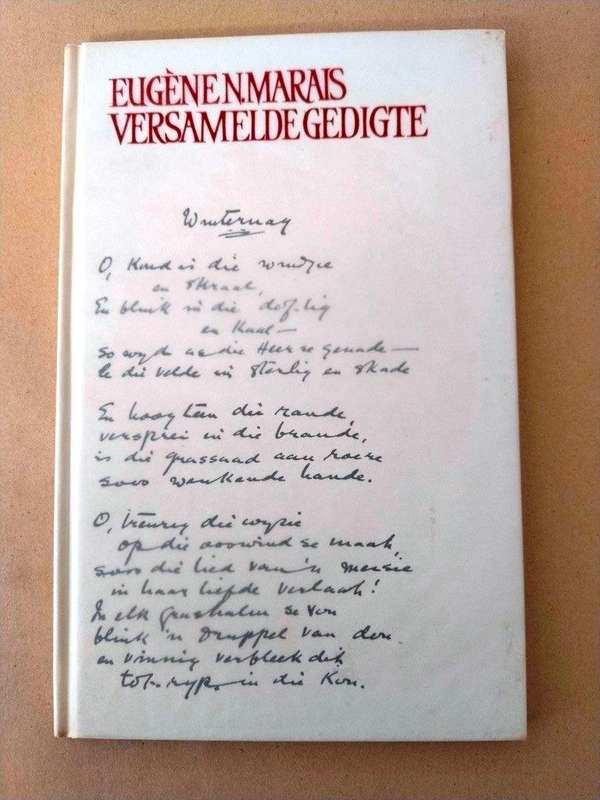 EUGÈNE N. MARAIS
VERSAMELDE GEDIGTE
Winternag
O, Koud is die windjie
en skraal,
En blink in die dof-lig
en Kaal—
so wyd as die Heer se genade—
le die velde in sterlig en skade
En hoog teen die rande,
versprei in die brande,
is die grassaad aan roere
soos wenkende hande.
O, treurig die wysie
op die ooswind se maat,
soos die lied van 'n meisie
in haar liefde verlaat!
In elk grashalm se vou
blink 'n druppel van dou
en vinnig verbleek dit
tot ryp in die Kou.